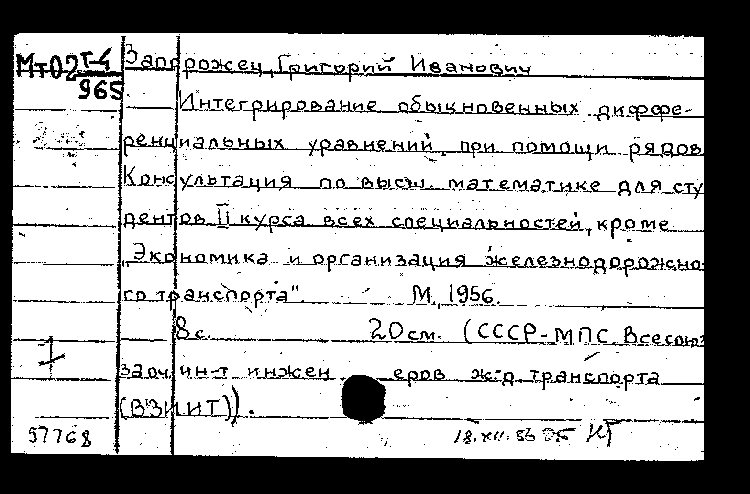 Мт02 Г-4
965
Запорожец, Григорий Иванович
Интегрирование обыкновенных диффе-
ренциальных уравнений при помощи рядов
Консультация по высш. математике для сту
дентов II курса всех специальностей, кроме
„Экономика и организация железнодорожно-
го транспорта". М, 1956.
8 с. 20 см. (СССР-МПС. Всесоюз
заоч ин-т инженеров ж-д. транспорта
(ВЗИИТ)).
57768
18.XII.56